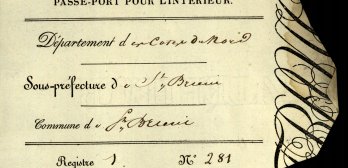 PASSE-PORT POUR L'INTÉRIEUR.
Département des Cotes du Nord
Sous-préfecture de St Brieuc
Commune de St Brieuc
Registre 1 N° 281